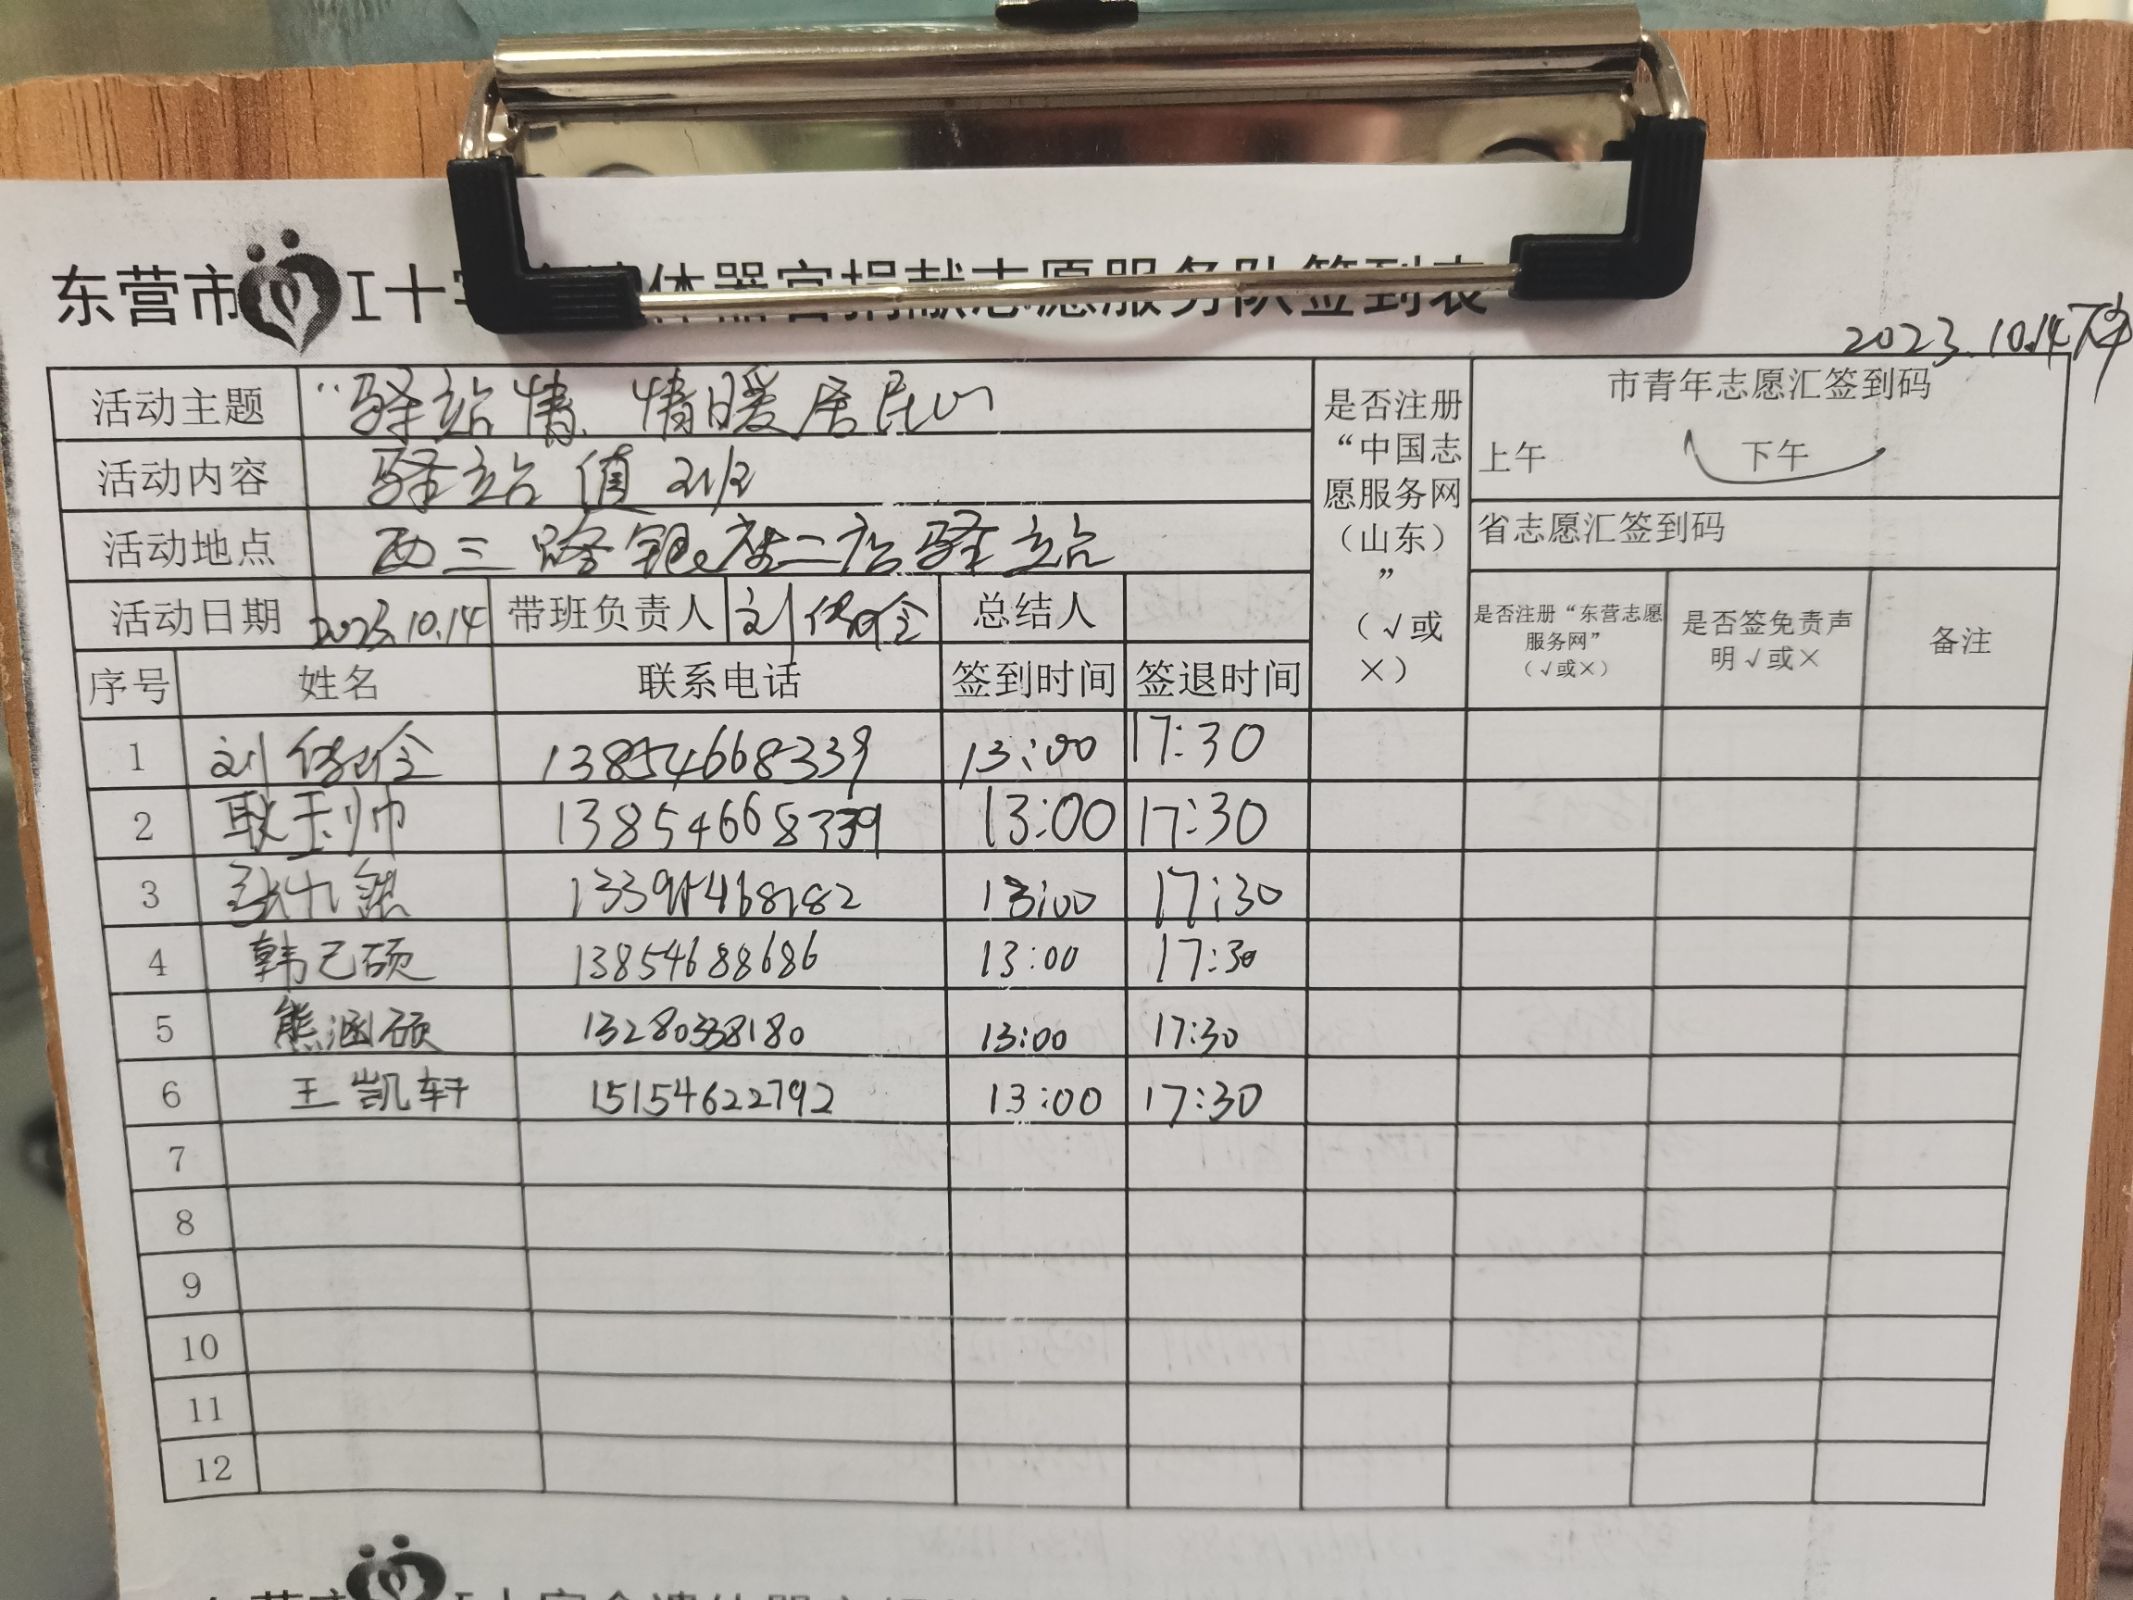 东营市 十 体器官捐献志愿服务队签到表
2023.10.14下午
活动主题 “驿站情、情暖居民心”
市青年志愿汇签到码
上午 下午
活动内容 驿站值班
活动地点 西三路银座二店驿站
省志愿汇签到码
是否注册
“中国志
愿服务网
（山东）
”
（√或
×）
活动日期 2023.10.14 带班负责人 刘 总结人
是否注册“东营志愿
服务网”
（√或×）
是否签免责声
明√或×
备注
序号 姓名 联系电话 签到时间 签退时间
1 刘 13854668339 13:00 17:30
2 耿玉帅 13854668339 13:00 17:30
3 13:00 17:30
4 韩己硕 13854688686 13:00 17:30
5 熊涵硕 13280338180 13:00 17:30
6 王凯轩 15154622792 13:00 17:30
7
8
9
10
11
12